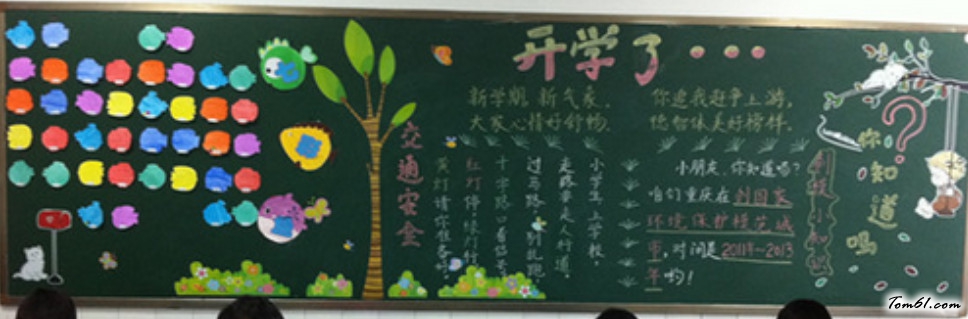 开学了...
新学期,新气象.
大家心情好舒畅.
你追我赶争上游,
您给集美好榜样.
交通安全
小学生,上学校,
走路要走人行道,
过马路,别乱跑
红灯停,绿灯行
小朋友,你知道吗?
咱们重庆在创国家
环境保护模范城
市,时间是2011年~2013
年哟!
创模小知识
你知道吗
?
Tom61.com